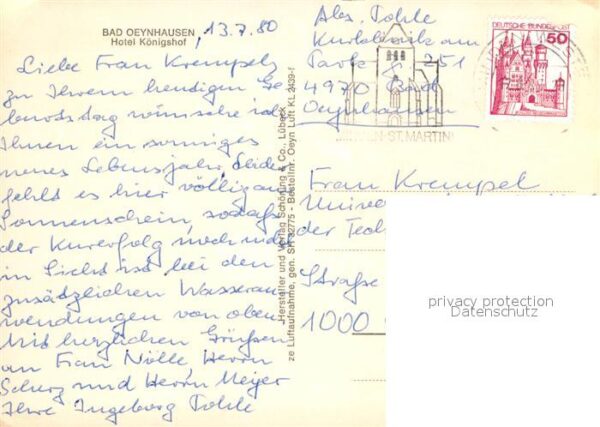 BAD OEYNHAUSEN
Hotel Königshof
, 13.7.80
Liebe Frau Krempel,
zu Ihrem heutigen Ge-
burtstag wünsche ich
Ihnen ein sonniges
neues Lebensjahr. Leider
fehlt es hier völlig an
Sonnenschein, sodaß
der Kurerfolg noch nicht
in Sicht ist bei den
zusätzlichen Wasseran-
wendungen von oben.
Mit herzlichen Grüßen
an Frau Nölle, Herrn
Scherz und Herrn Meyer
Ihre Ingeborg Tohle
Hersteller und Verlag Schöning & Co., Lübeck
ze Luftaufnahme, gen. SH 32775 - Bestellnr. Oeyn Luft KL 2439-f
Abs. Tohle
Kurklinik am
Park Z. 251
4970 Bad
Oeynhausen
ST. MARTIN
DEUTSCHE BUNDESPOST
50
Frau Krempel
Unive
der Tech
Straße
1000
privacy protection
Datenschutz